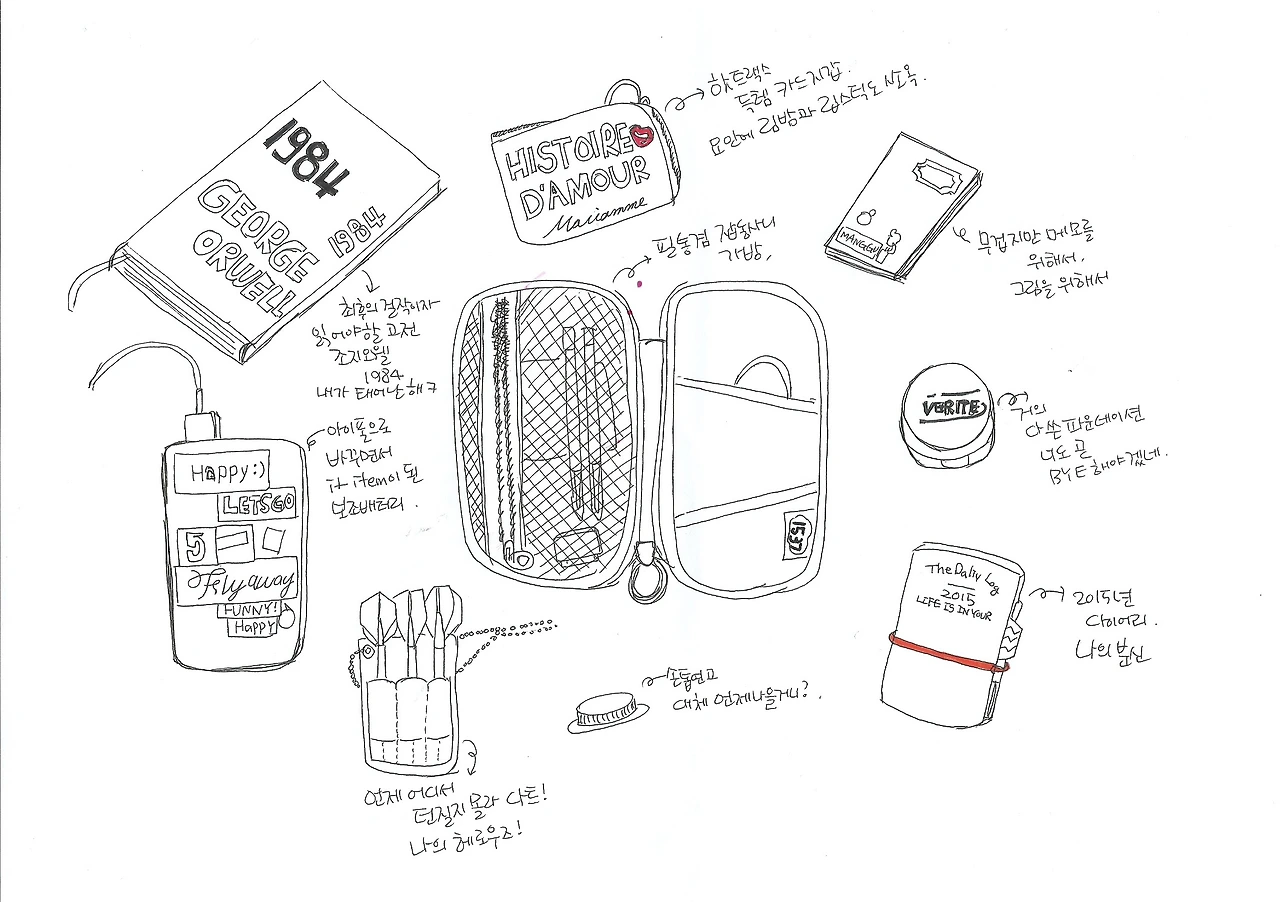 1984
GEORGE
ORWELL
1984
최후의 걸작이자
읽어야할 고전
조지오웰
1984
내가 태어난해ㅋ
HISTOIRE
D'AMOUR
Mariamme
핫트랙스
득템 카드지갑.
요안에 림밤과 립스틱도 쏘옥.
MANGGU
무겁지만 메모를
위해서,
그림을 위해서
필통겸 잡동사니
가방,
1537
VERITE
거의
다 쓴 파운데이션
너도 곧
BYE해야겠네.
Happy:)
LETSGO
5
Fly away
FUNNY!
Happy
아이폰으로
바꾸면서
item이 된
보조배터리.
The Daily Log
2015
LIFE IS IN YOUR
2015년
다이어리.
나의 분신
손톱연고
대체 언제나을거니?,
언제 어디서
던질지 몰라 다트!
나의 헤로우즈!